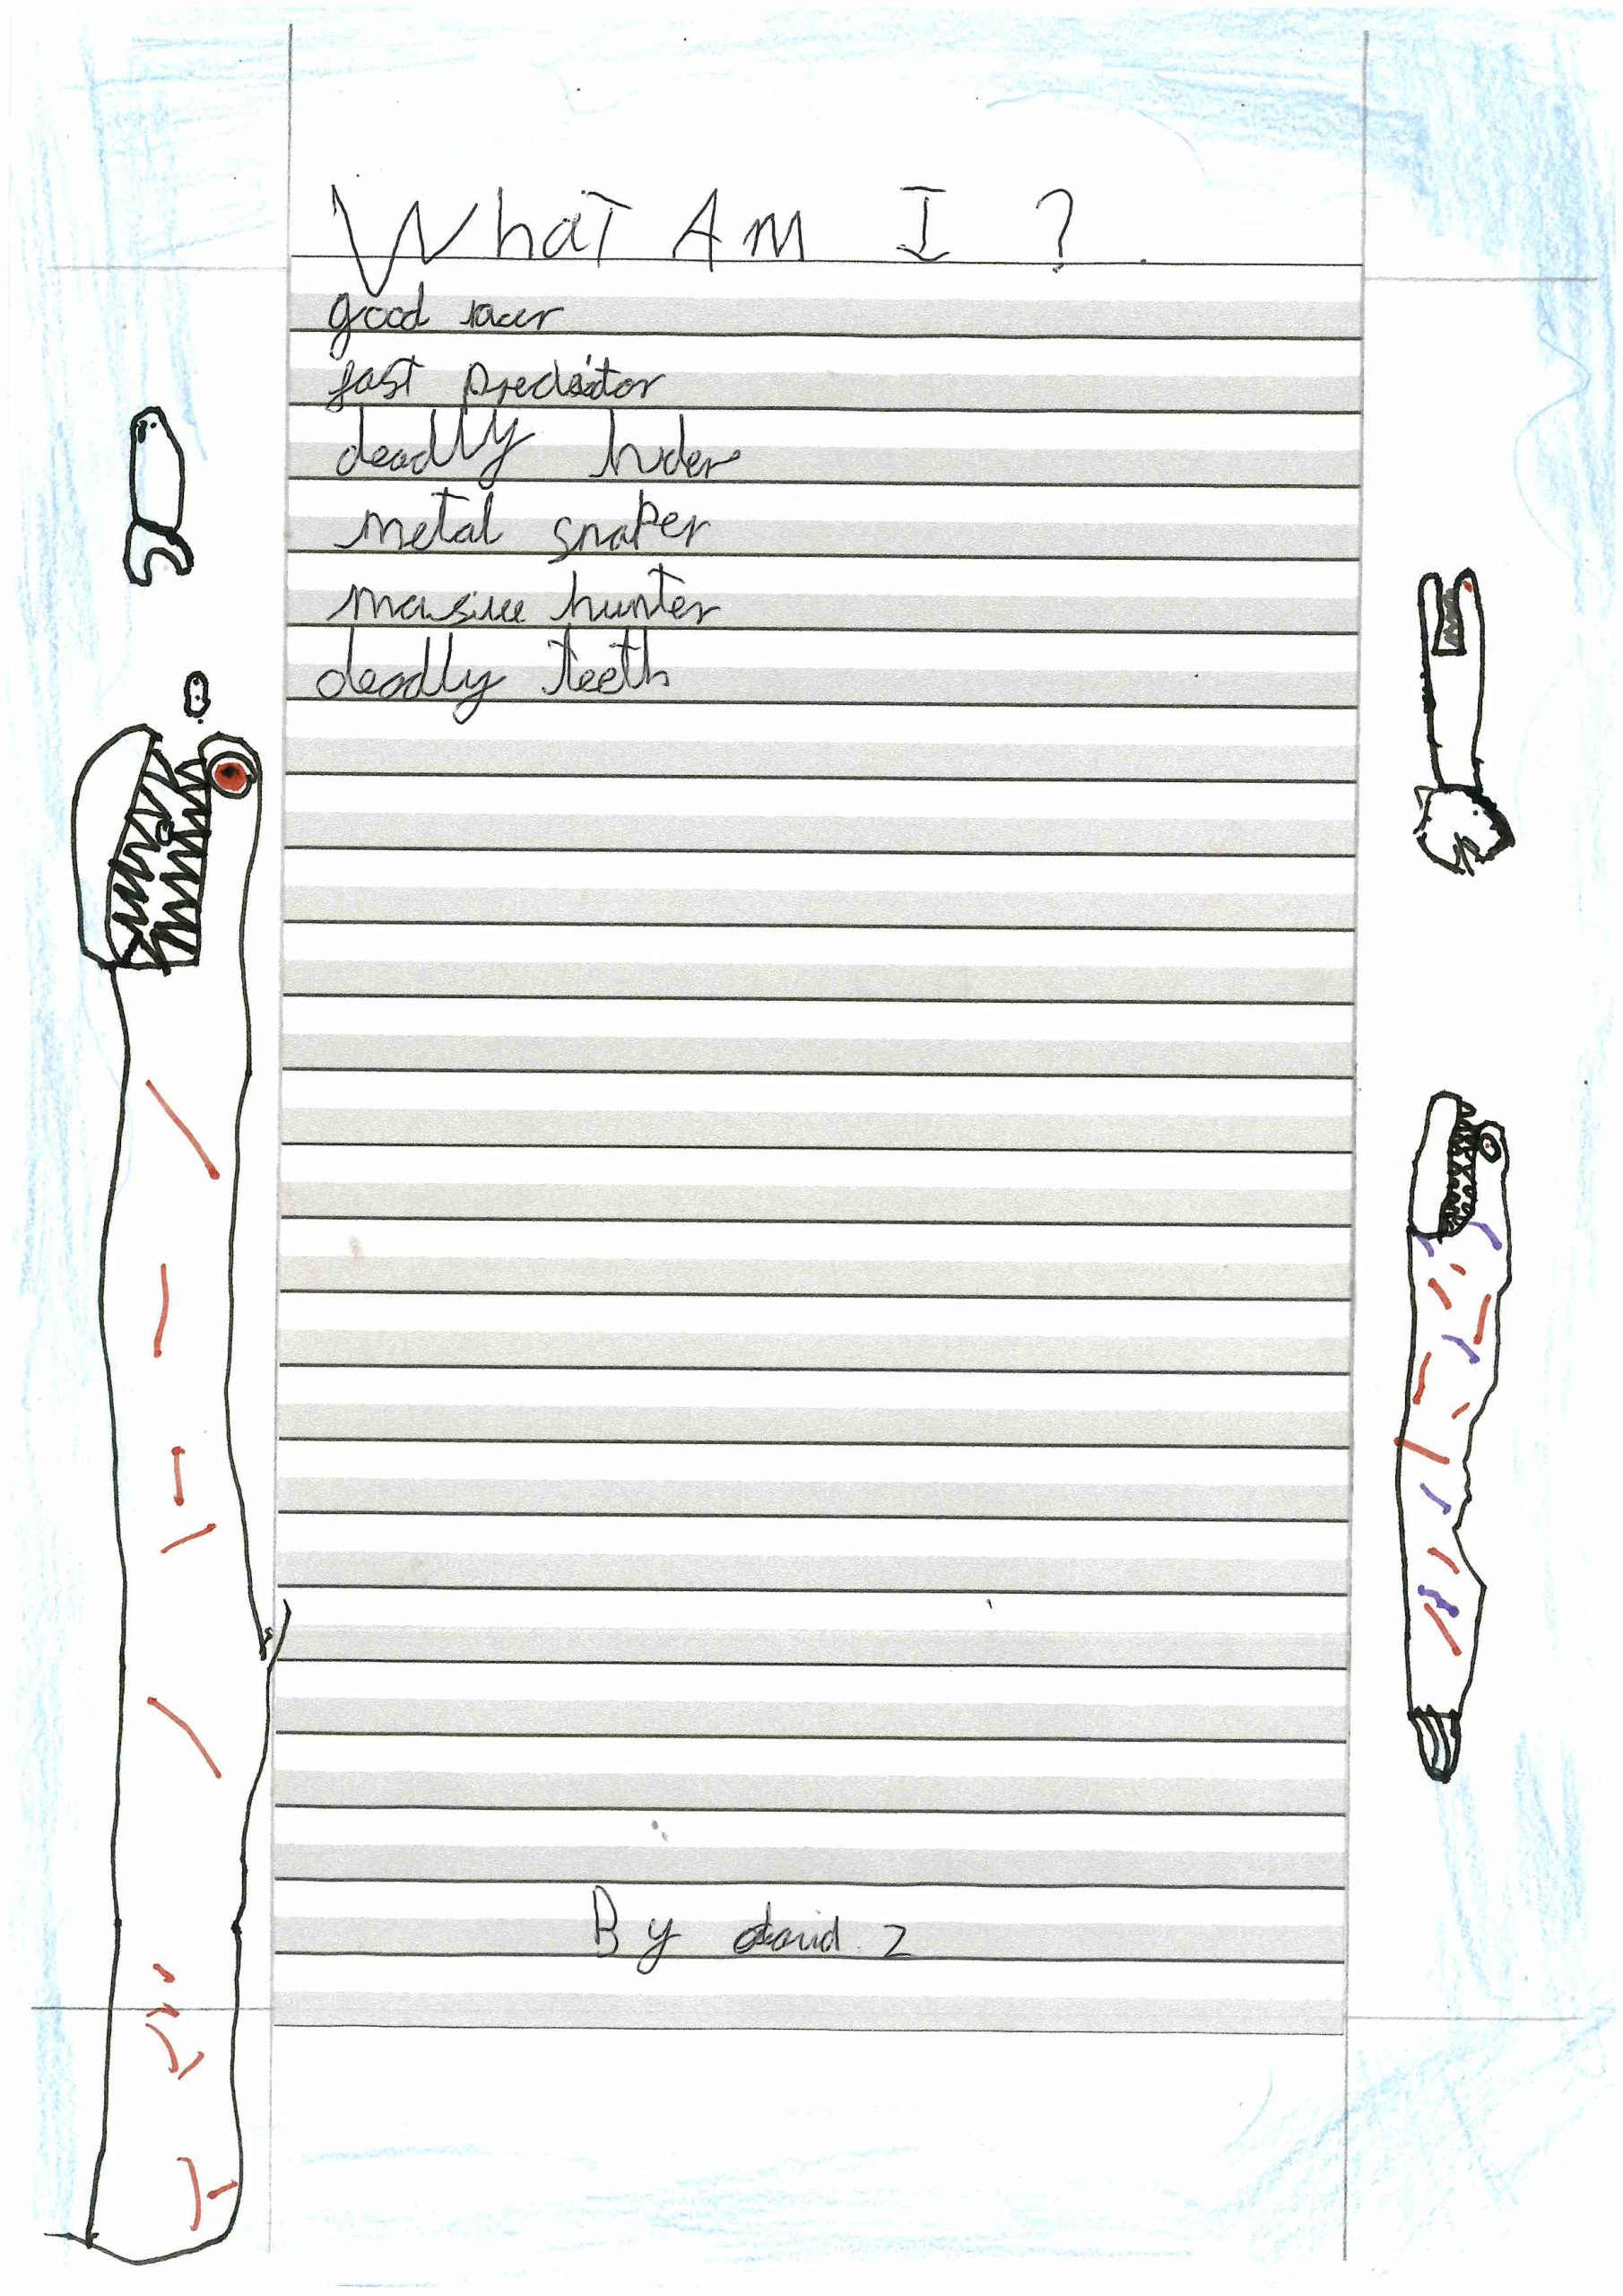 What Am I ?
good racer
fast predator
deadly hider
metal snaper
masive hunter
deadly teeth
By david. Z